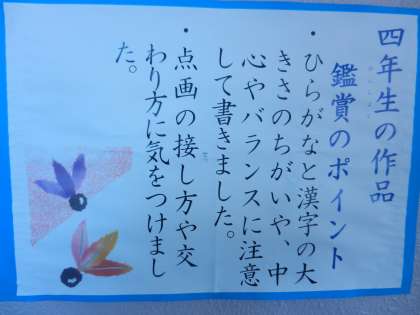 四年生の作品
鑑賞のポイント
・ひらがなと漢字の大
きさのちがいや、中
心やバランスに注意
して書きました。
・点画の接し方や交
わり方に気をつけまし
た。